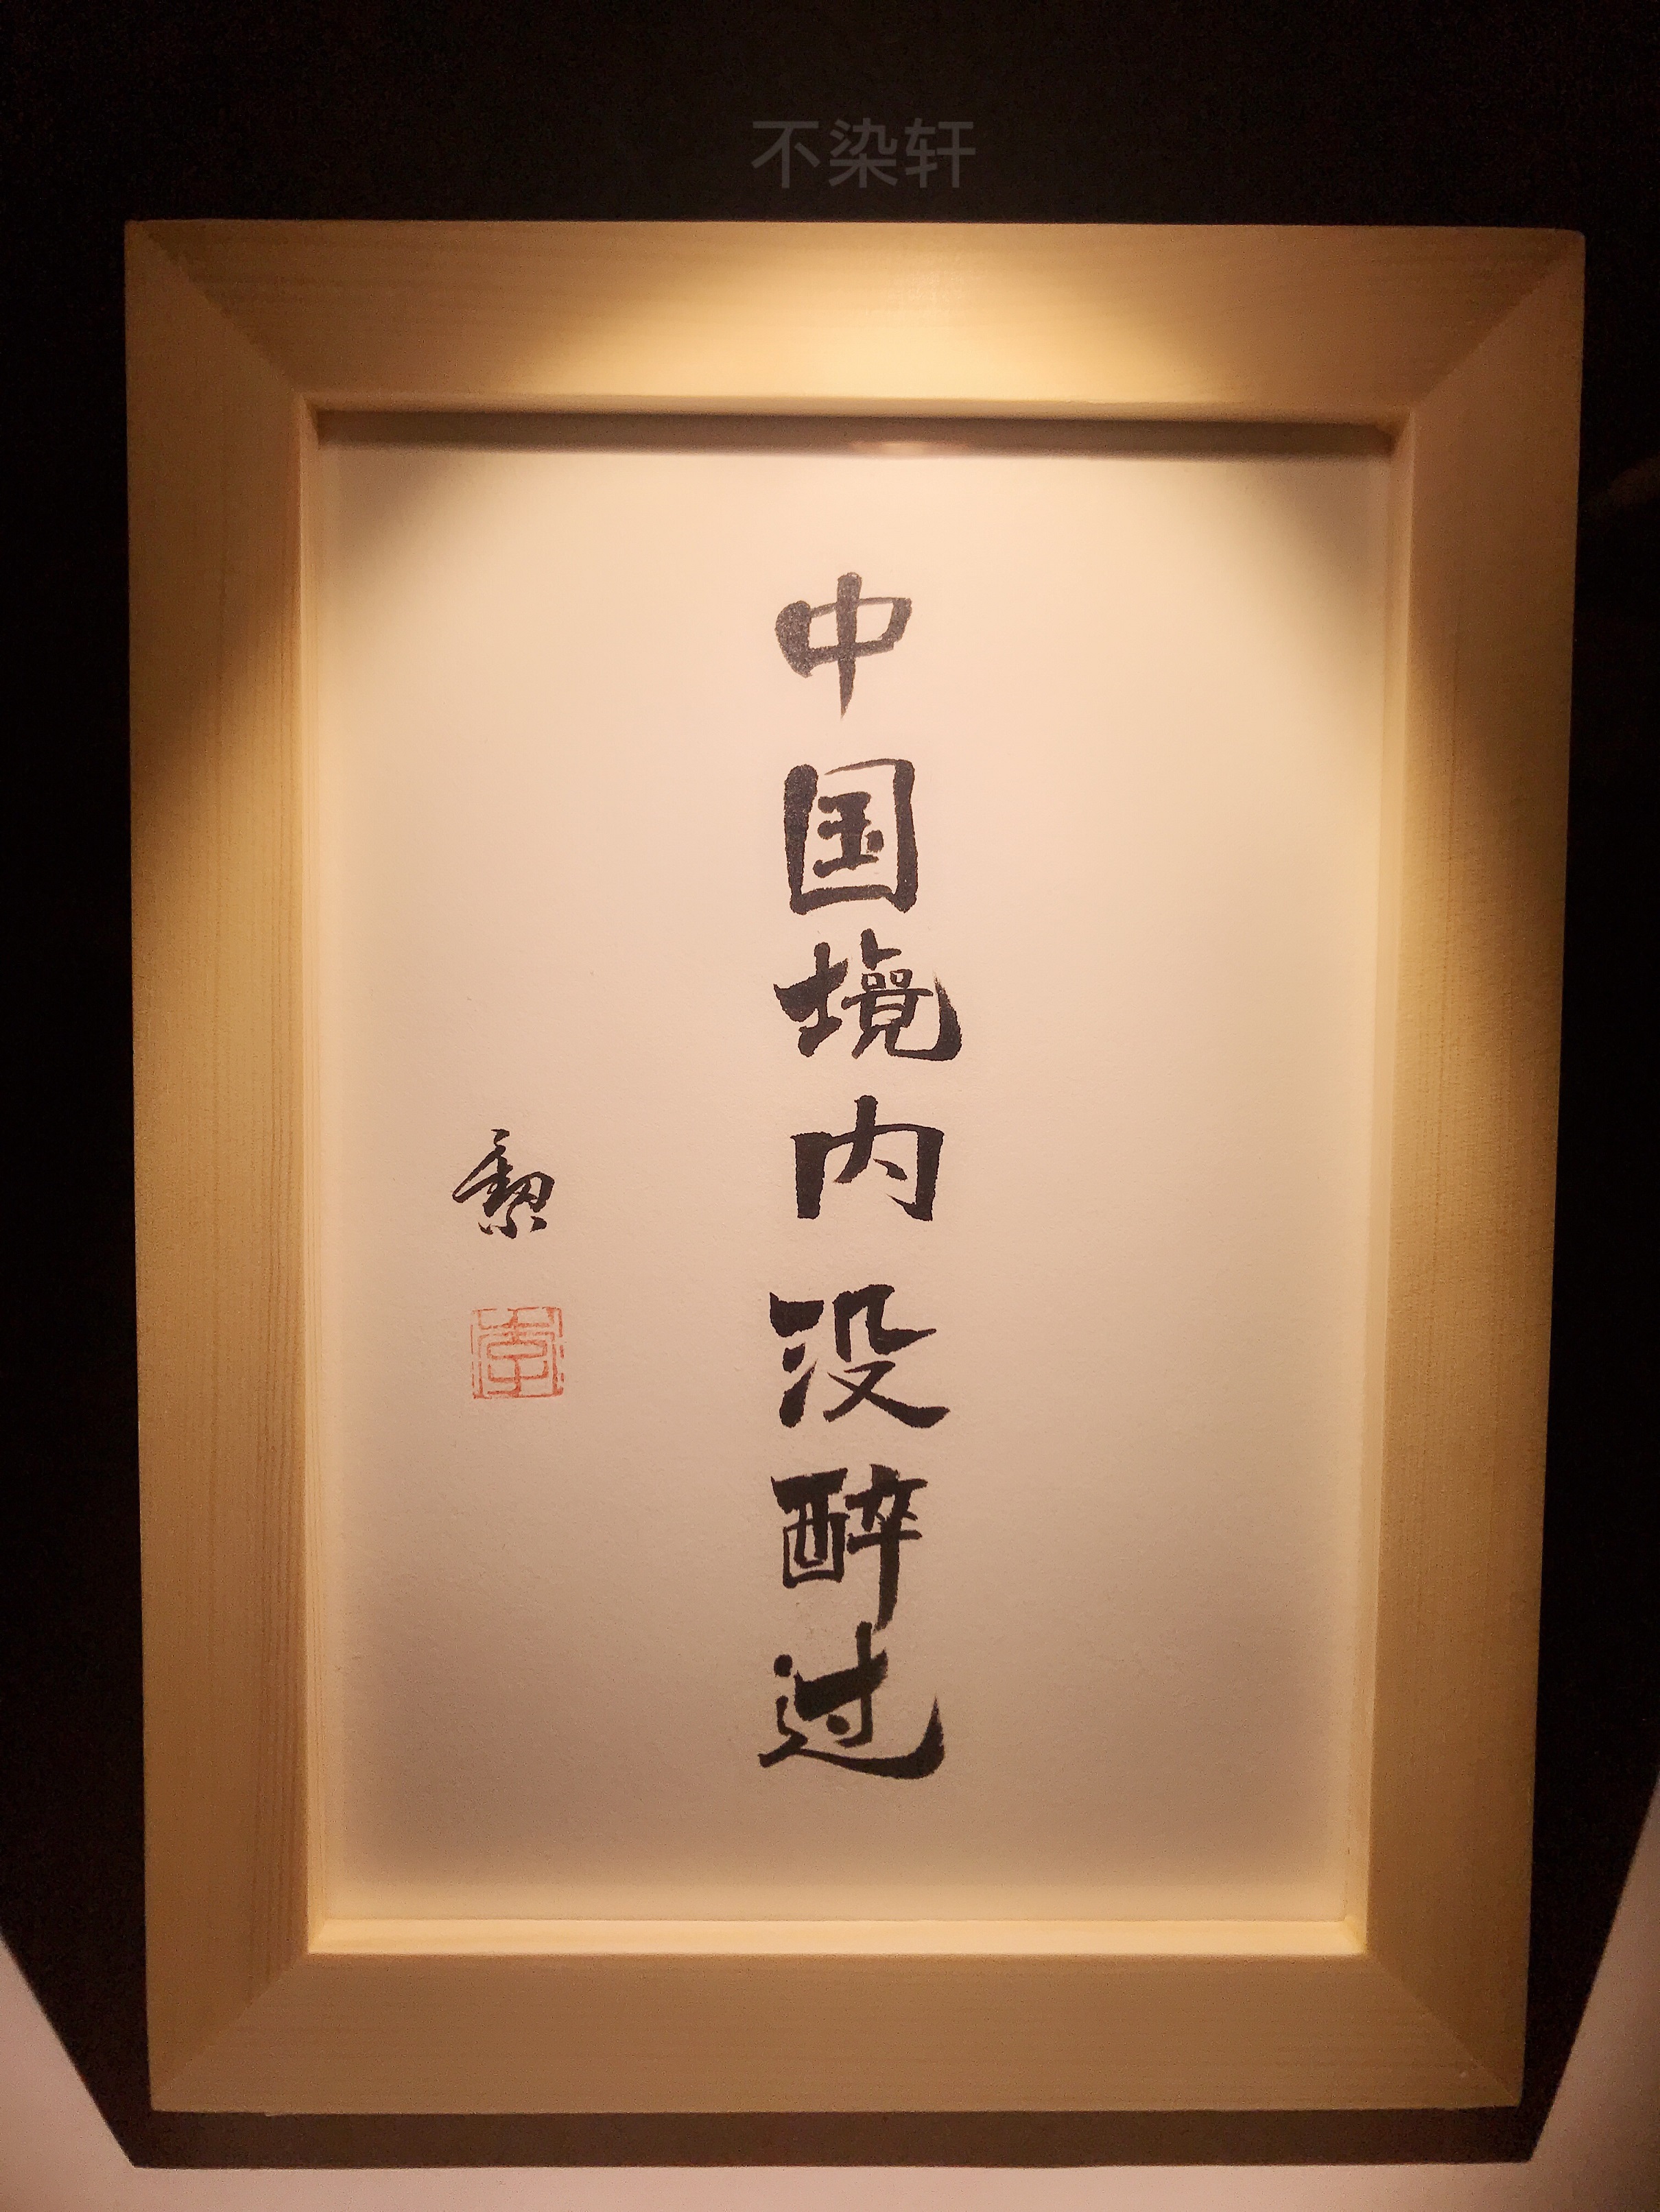 不染轩
中国境内没醉过